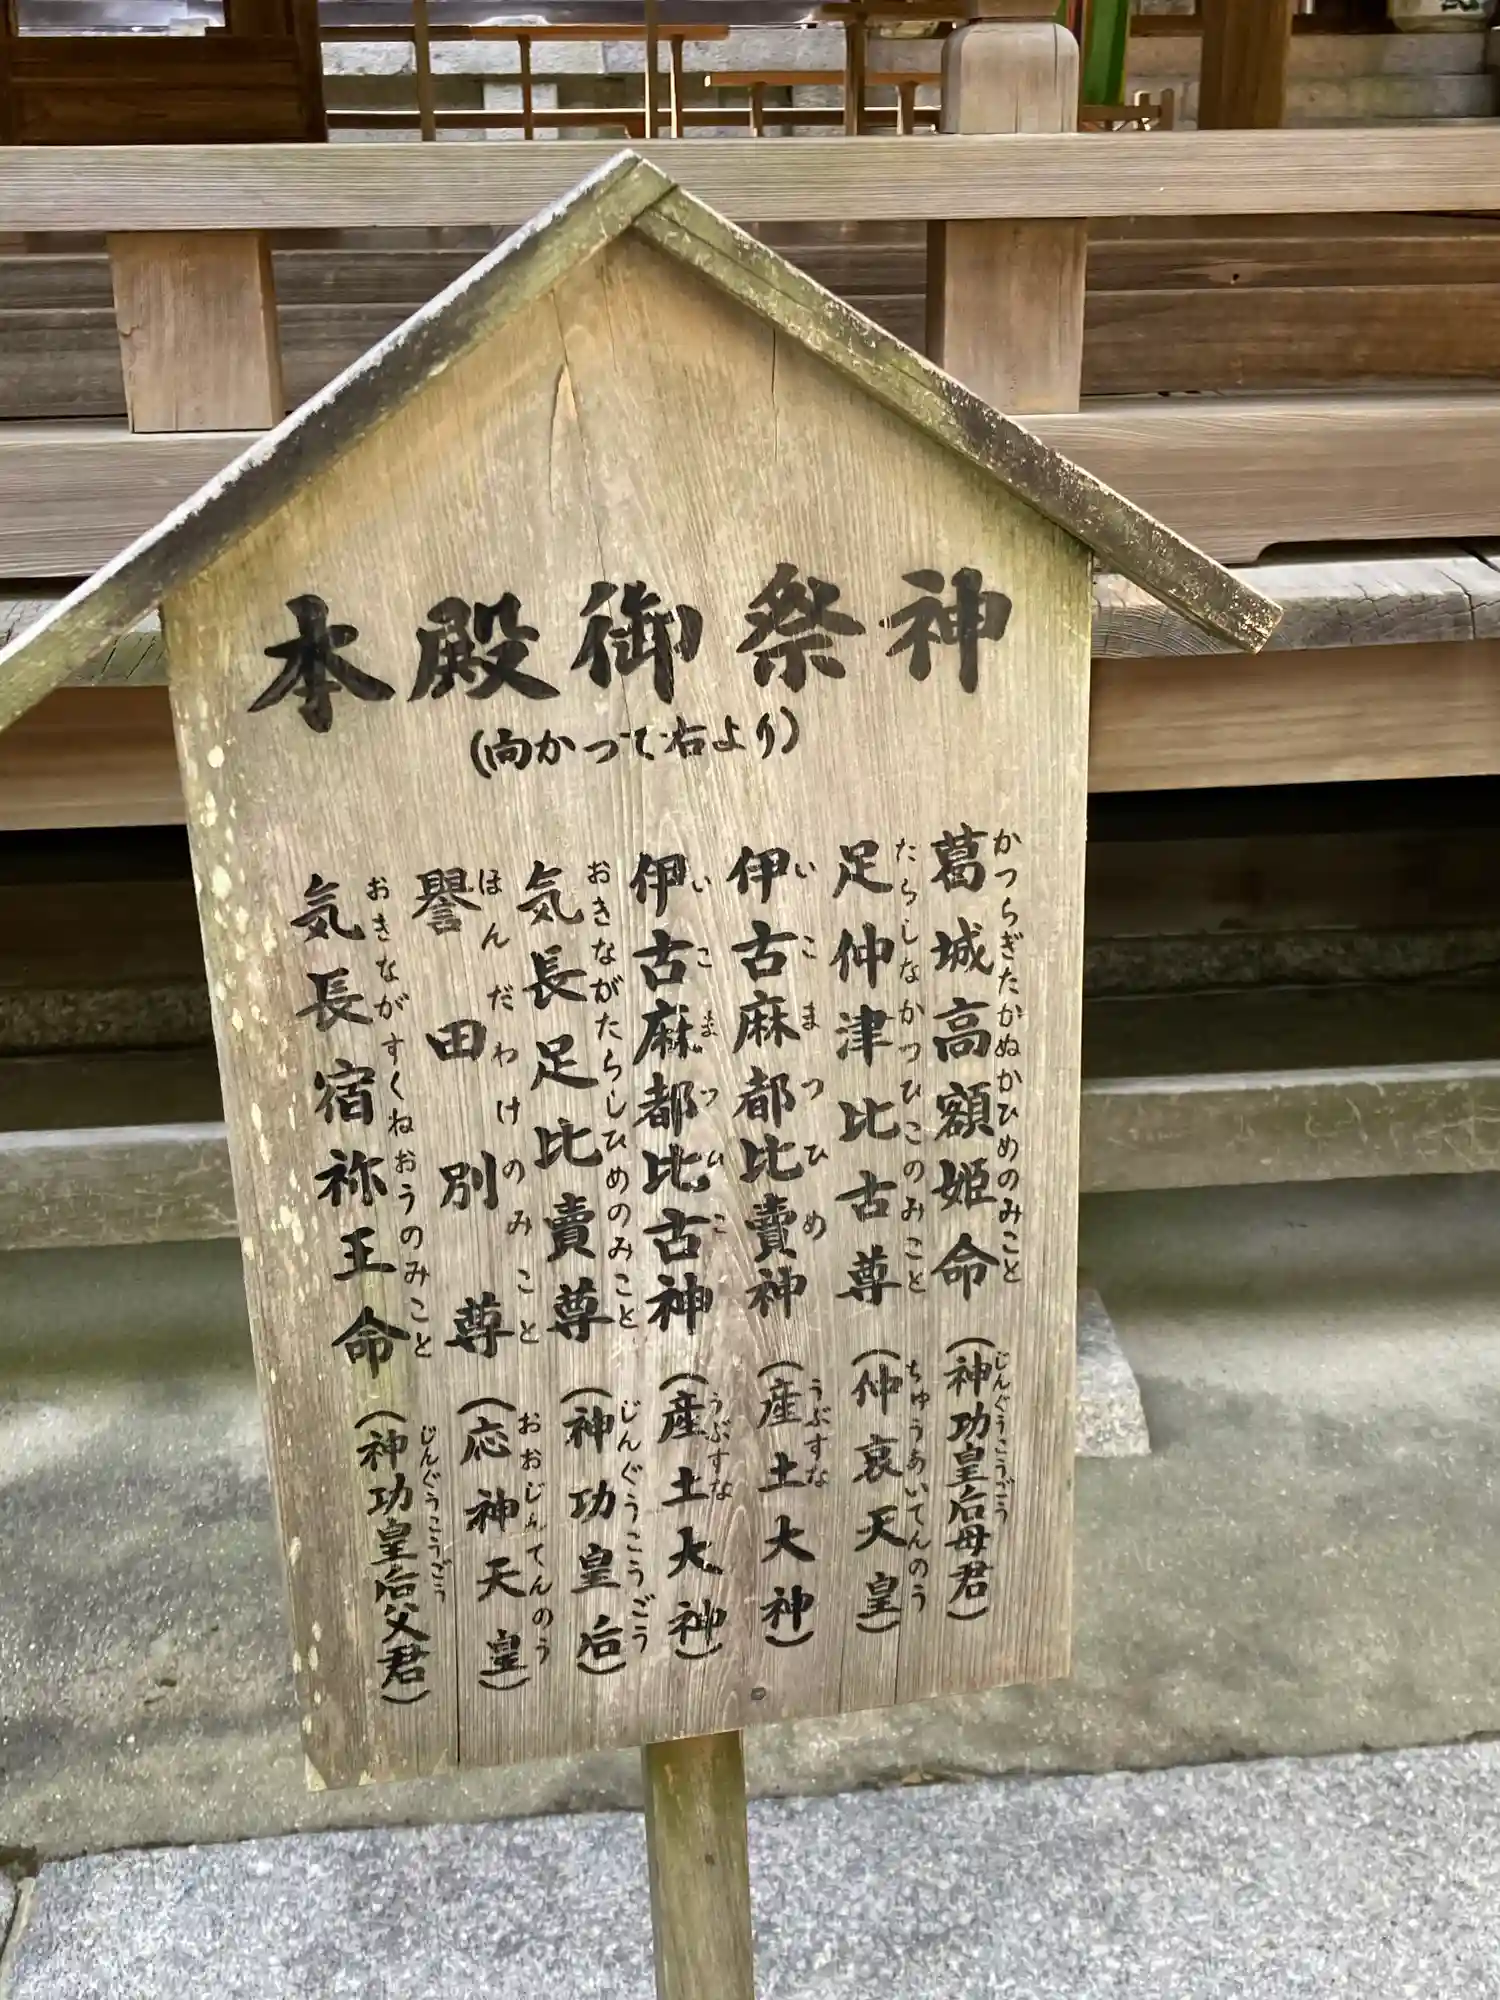 本殿御祭神
(向かつて右より)
葛城高額姫命(神功皇后母君)
かつらぎたかぬかひめのみこと じんぐうこうごう
足仲津比古尊(仲哀天皇)
たらしなかつひこのみこと ちゅうあいてんのう
伊古麻都比賣神(産土大神)
いこまつひめ うぶすな
伊古麻都比古神(産土大神)
いこまつひこ うぶすな
気長足比賣尊(神功皇后)
おきながたらしひめのみこと じんぐうこうごう
譽田別尊(応神天皇)
ほんだわけのみこと おおじんてんのう
気長宿祢王命(神功皇后父君)
おきながすくねおうのみこと じんぐうこうごう